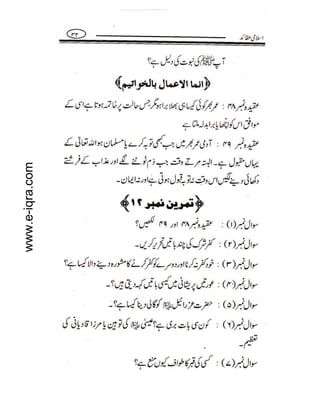 اسلامی عقائد
۳۳
آپ ﷺ کی نبوت کی دلیل ہے؟
﴿انما الاعمال بالخواتیم﴾
عقیدہ نمبر ۴۸: عمر بھر کوئی کیسا ہی بھلا برا ہو مگر جس حالت پر خاتمہ ہوتا ہے اسی کے
موافق اس کو اچھا یا برا بدلہ ملتا ہے
عقیدہ نمبر ۴۹: آدمی عمر بھر میں جب کبھی توبہ کرے یا مسلمان ہو اللہ تعالیٰ کے
یہاں مقبول ہے۔ البتہ مرتے وقت جب دم ٹوٹنے لگے اور عذاب کے فرشتے
دکھائی دینے لگیں اس وقت نہ توبہ قبول ہوتی ہے اور نہ ایمان۔
﴿تمرین نمبر ۱۲﴾
سوال نمبر (۱): عقیدہ نمبر ۴۸ اور ۴۹ لکھیں؟
سوال نمبر (۲): کفر شرک کی چند باتیں تحریر کریں۔
سوال نمبر (۳): خود کفر نہ کرنا اور دوسرے کو کفر کرنے کا مشورہ دینے والا کیسا ہے؟
سوال نمبر (۴): عورتیں پریشانی میں کیسی باتیں کہہ دیتی ہیں؟۔
سوال نمبر (۵): حضرت عزرائیل علیہ السلام کو گالی دینا کیسا ہے؟۔
سوال نمبر (۶): کون سی بات بری ہے؟ عیسیٰ علیہ السلام کی توہین یا مرزا قادیانی کی
تعظیم۔
سوال نمبر (۷): کسی کی قبر کا طواف کیوں منع ہے؟
www.e-iqra.com